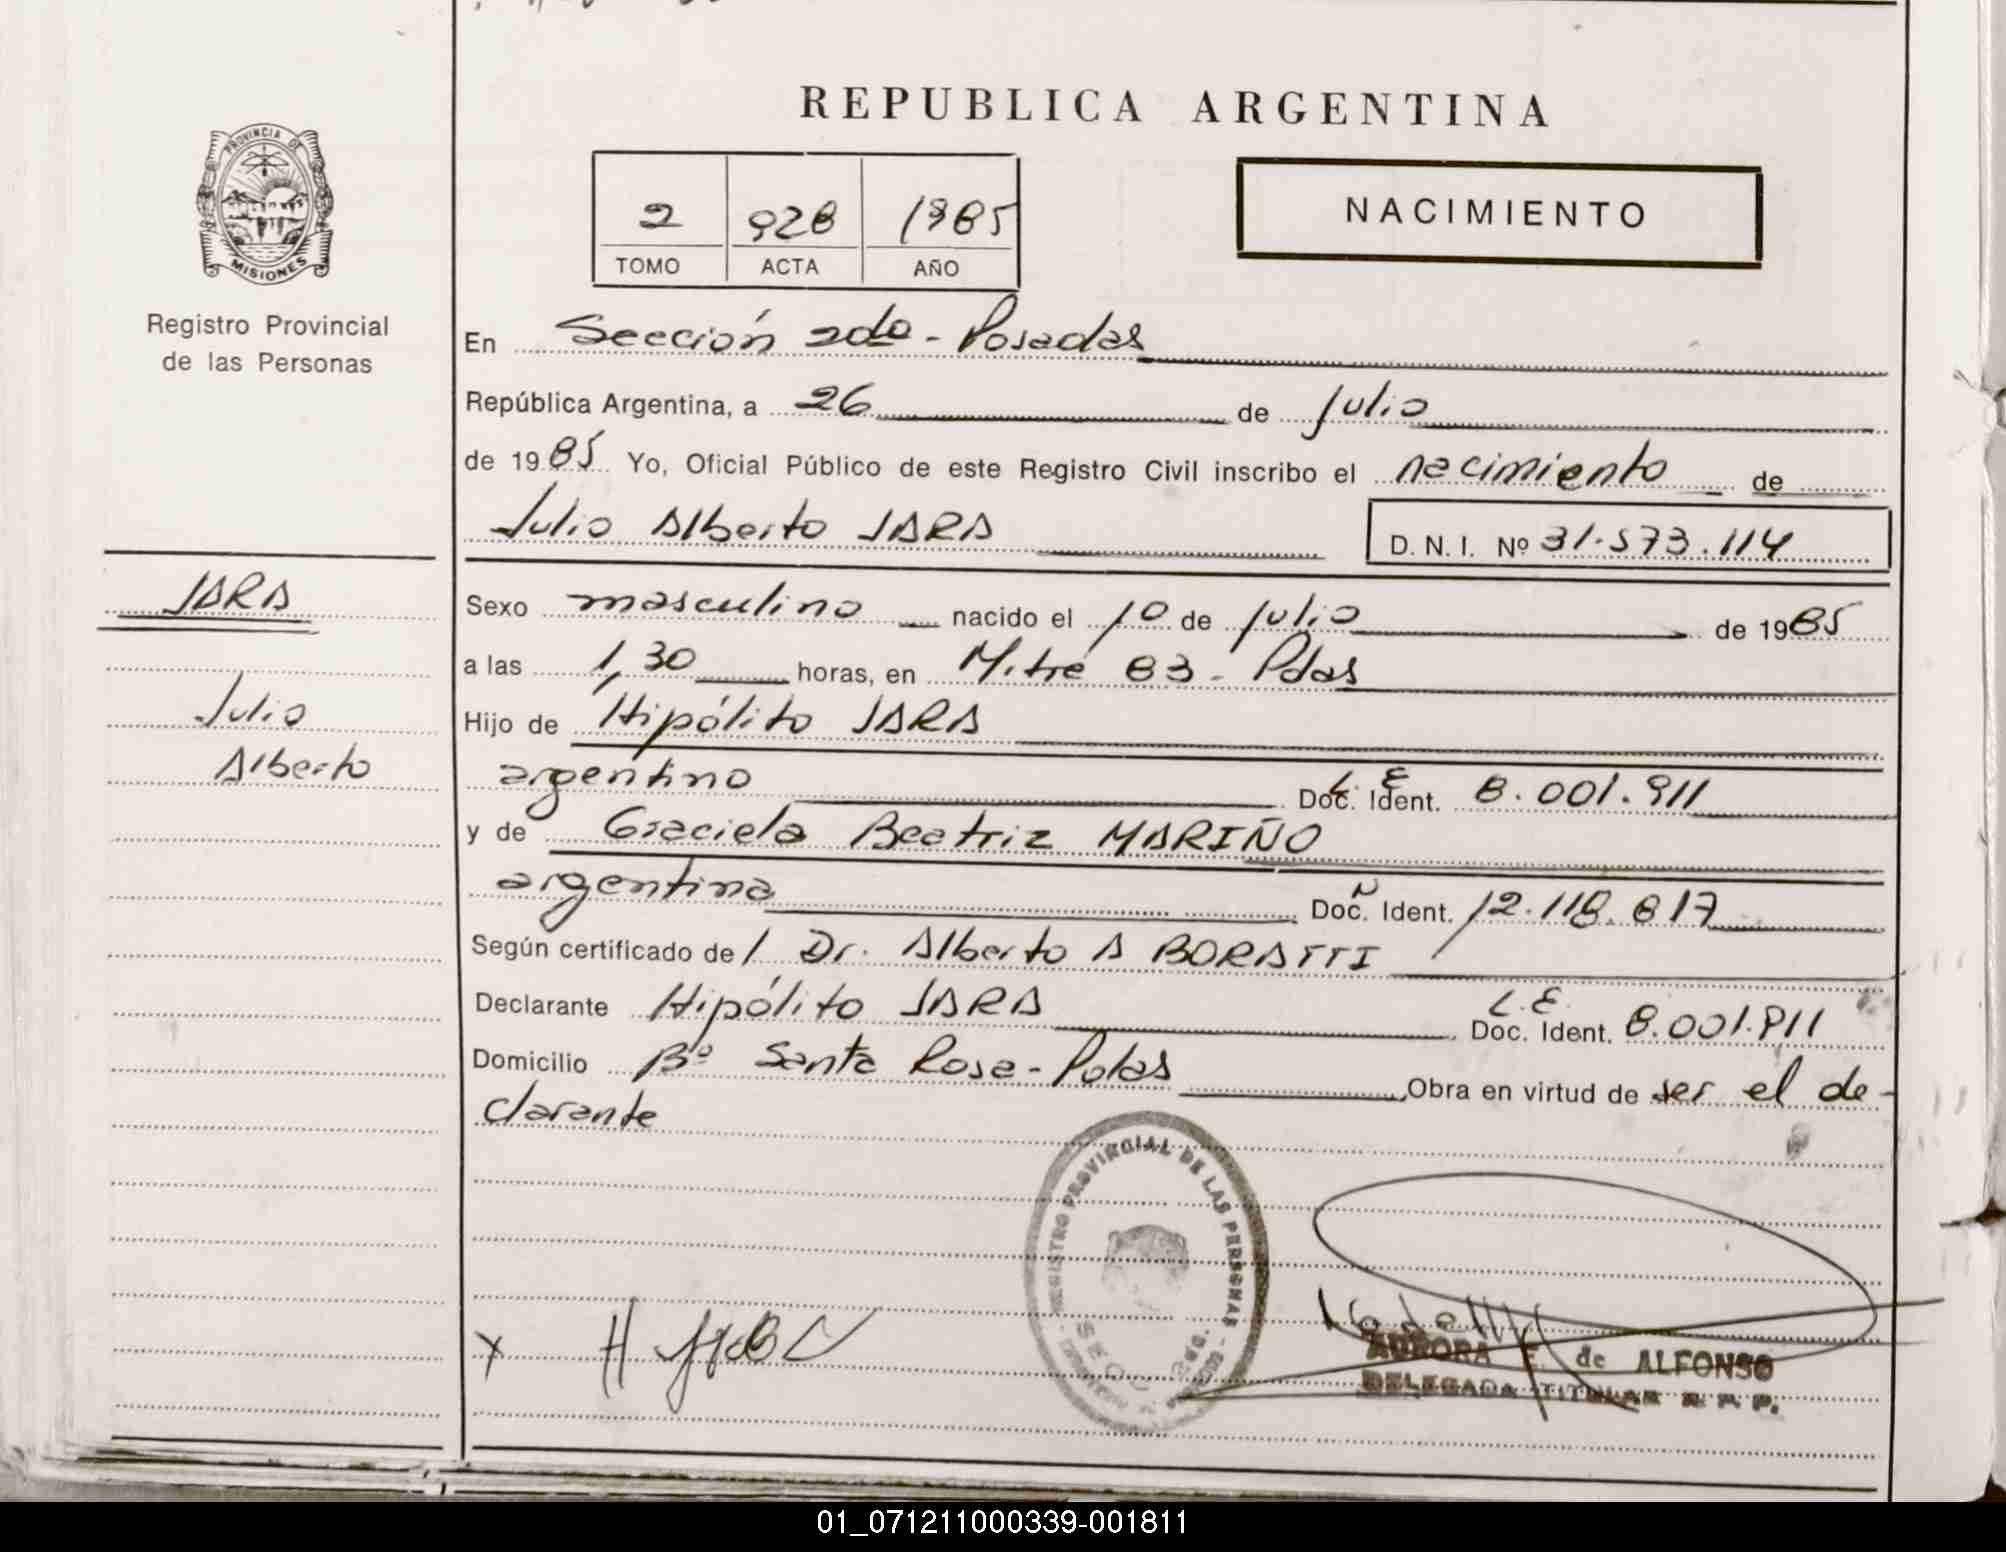 REPUBLICA ARGENTINA
PROVINCIA DE
MISIONES
Registro Provincial
de las Personas
2 928 1985
TOMO ACTA AÑO
NACIMIENTO
En Sección 2do - Posadas
República Argentina, a 26 de julio
de 1985 Yo, Oficial Público de este Registro Civil inscribo el nacimiento de
Julio Alberto JARA D. N. I. Nº 31.573.114
JARA
Julio
Alberto
Sexo masculino nacido el 10 de julio de 1985
a las 1,30 horas, en Mitre 83 - Pdas
Hijo de Hipólito JARA
argentino L.E Doc. Ident. 8.001.911
y de Graciela Beatriz MARIÑO
argentina Doc. Ident. 12.118.817
Según certificado de l Dr. Alberto A BORATTI
Declarante Hipólito JARA L.E. Doc. Ident. 8.001.911
Domicilio Bº Santa Rosa - Pdas Obra en virtud de ser el de-
clarante
REGISTRO PROVINCIAL DE LAS PERSONAS
x H JARA
AURORA E. de ALFONSO
DELEGADA TITULAR R. P. P.
01_071211000339-001811